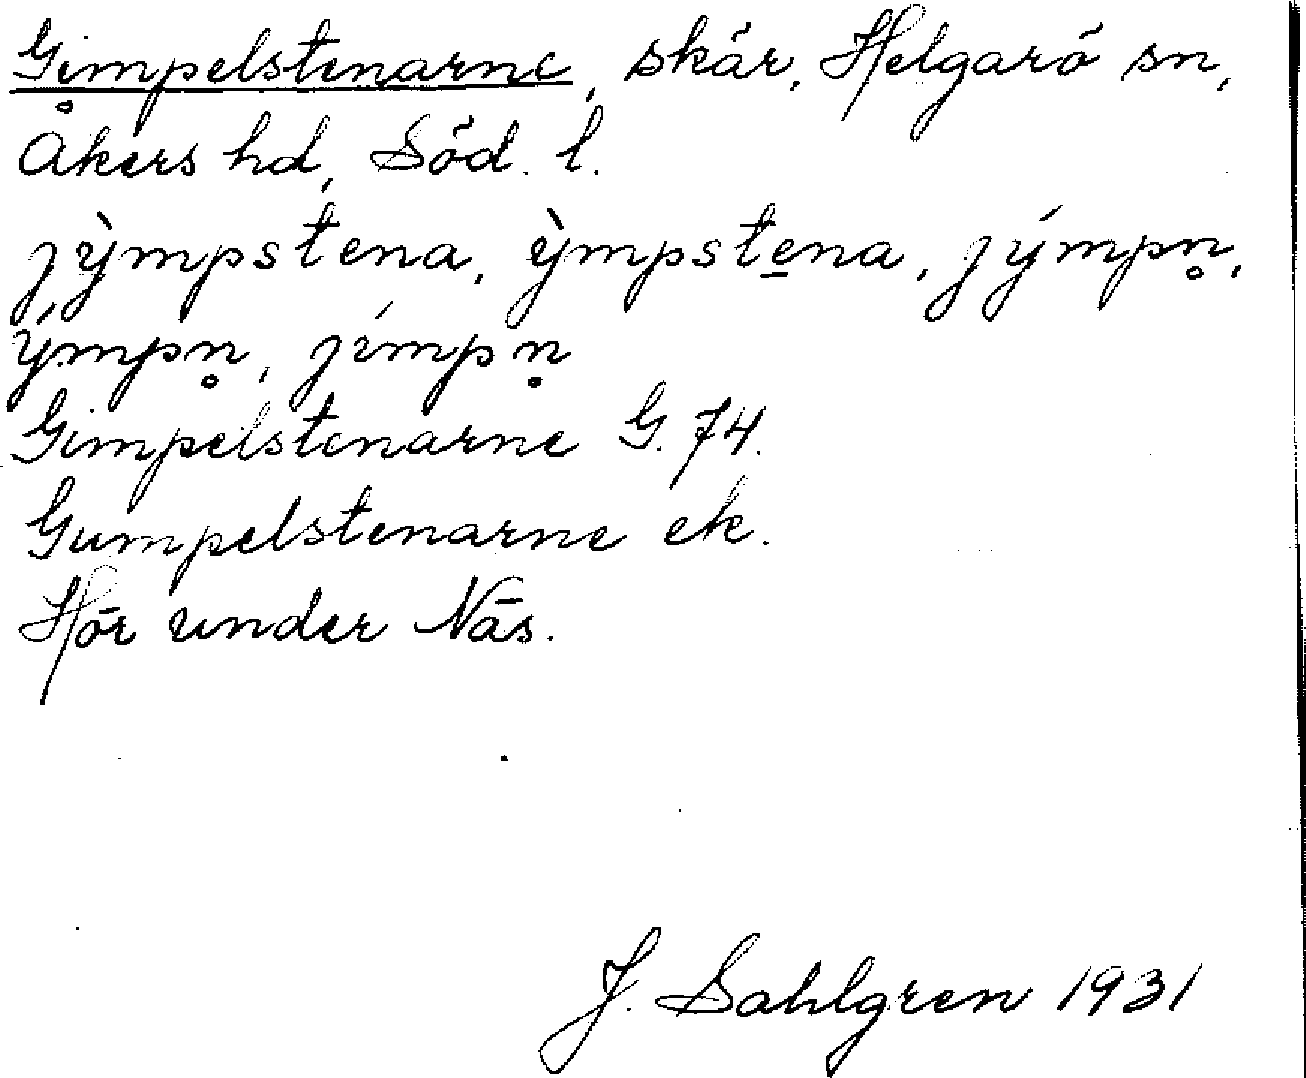 Gimpelstenarne, skär, Helgarö sn,
Åkers hd, Söd. l.
jỳmpstena, ỳmpste̲na, jýmpn̥,
ýmpn̥, jímpn̥
Gimpelstenarne G. 74.
Gumpelstenarne ek.
Hör under Näs.
J. Sahlgren 1931